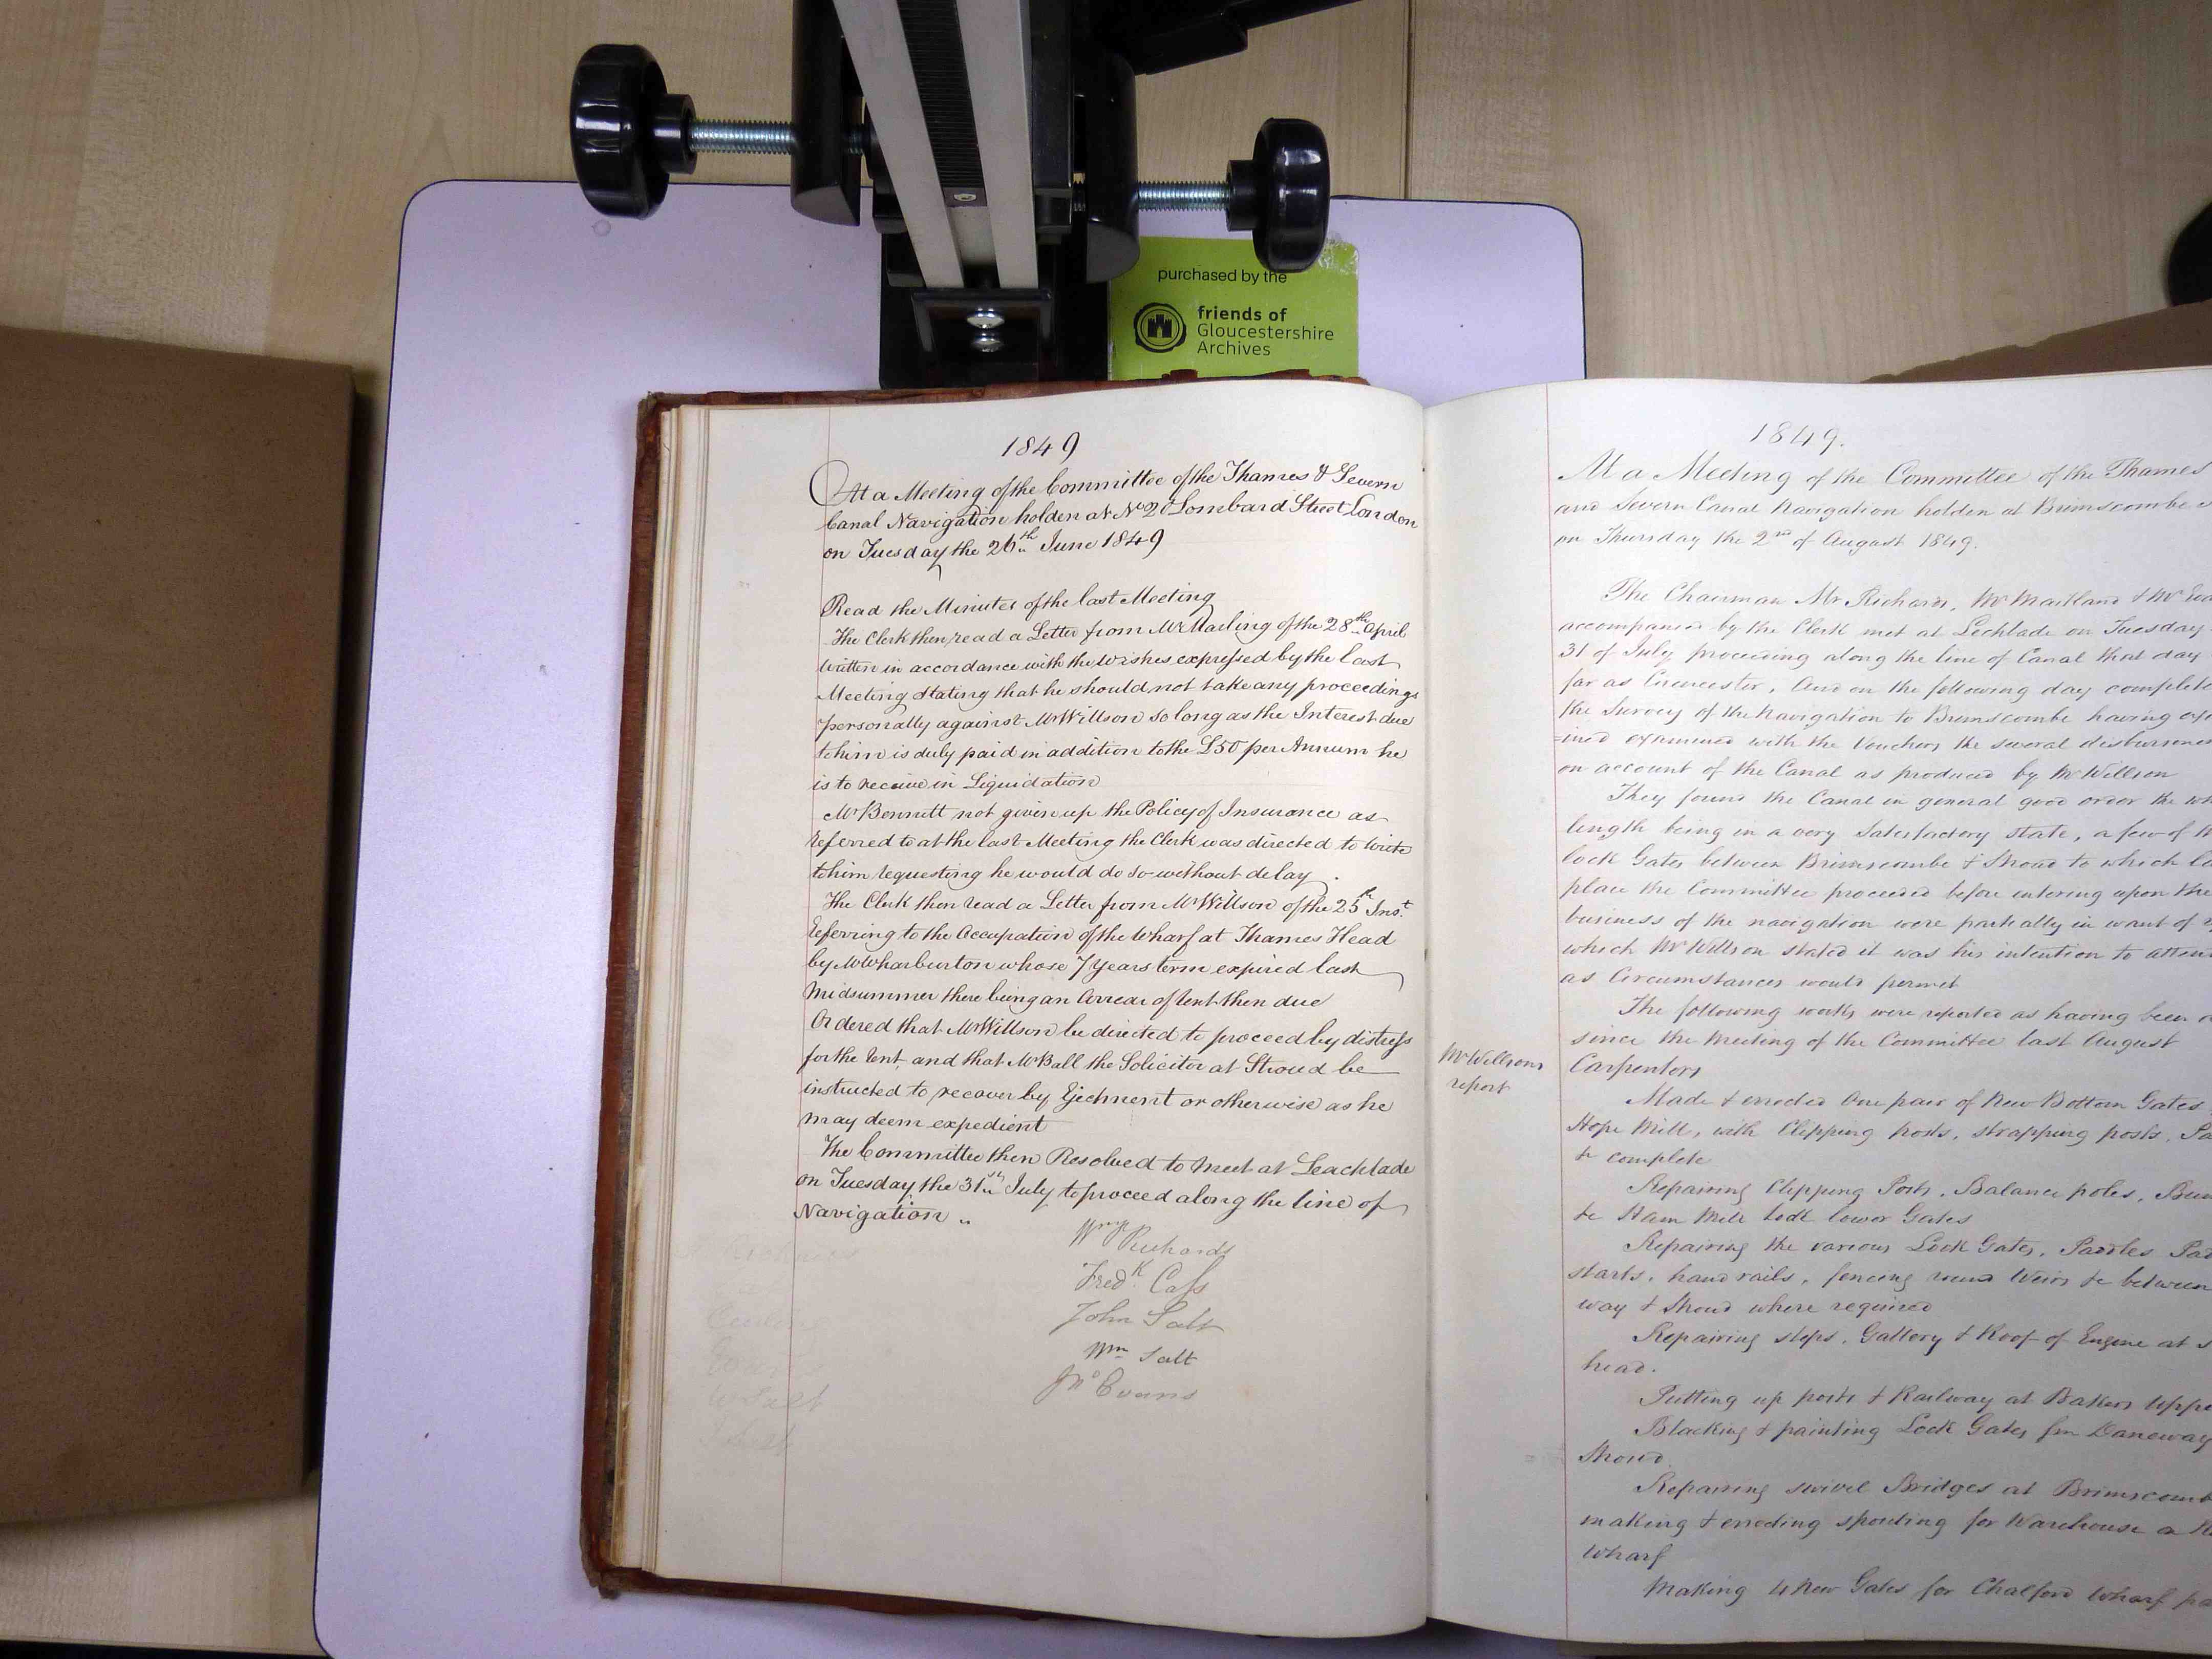 purchased by the
friends of
Gloucestershire
Archives
1849
At a Meeting of the Committee of the Thames & Severn
Canal Navigation holden at No 20 Lombard Street London
on Tuesday the 26th June 1849
Read the Minutes of the last Meeting
The Clerk then read a Letter from Mr Marling of the 28th April
written in accordance with the Wishes expressed by the last
Meeting stating that he should not take any proceedings
personally against Mr Willson so long as the Interest due
to him is duly paid in addition to the £50 per Annum he
is to receive in Liquidation
Mr Bennett not given up the Policy of Insurance as
referred to at the last Meeting the Clerk was directed to write
to him requesting he would do so without delay.
The Clerk then read a Letter from Mr Willson of the 25th Inst.
referring to the Occupation of the Wharf at Thames Head
by Mr Wharburton whose 7 Years term expired last
Midsummer there being an Arrear of rent then due
Ordered that Mr Willson be directed to proceed by distress
for the rent, and that Mr Ball the Solicitor at Stroud be
instructed to recover by Ejectment or otherwise as he
may deem expedient
The Committee then Resolved to meet at Leachlade
on Tuesday the 31st July to proceed along the line of
Navigation
Richards
Fredk. Cass
John Salt
Wm Salt
Jno Evans
W Salt
1849.
At a Meeting of the Committee of the Thames
and Severn Canal Navigation holden at Brimscombe
on Thursday the 2nd of August 1849.
The Chairman Mr Richards, Mr Maitland & Mr
accompanied by the Clerk met at Lechlade on Tuesday
31 of July proceeding along the line of Canal that day
far as Cirencester, And on the following day complete
the Survey of the Navigation to Brimscombe having
=ined examined with the Vouchers the several disbursemen
on account of the Canal as produced by Mr Willson
They found the Canal in general good order the wh
length being in a very Satisfactory state, a few of
lock Gates between Brimscombe & Stroud to which
place the Committee proceeded before entering upon the
business of the navigation were partially in want of
which Mr Willson stated it was his intention to atten
as Circumstances would permit
The following works were reported as having been
since the Meeting of the Committee last August
Mr Willsons
report
Carpenters
Made & erected One pair of New Bottom Gates
Hope Mill, with Clipping posts, strapping posts,
&c complete
Repairing Clipping Posts, Balance poles,
&c Ham Mill Lock lower Gates
Repairing the various Lock Gates, Paddles
starts, hand rails, fencing round Weirs &c between
way & Stroud where required
Repairing steps, Gallery & Roof of Engine at
head.
Putting up posts & Railway at Bakers Uppe
Blacking & painting Lock Gates fm Daneway
Stroud.
Repairing swivel Bridges at Brimscomb
making & erecting spouting for Warehouse a
Wharf
Making 4 New Gates for Chalford Wharf